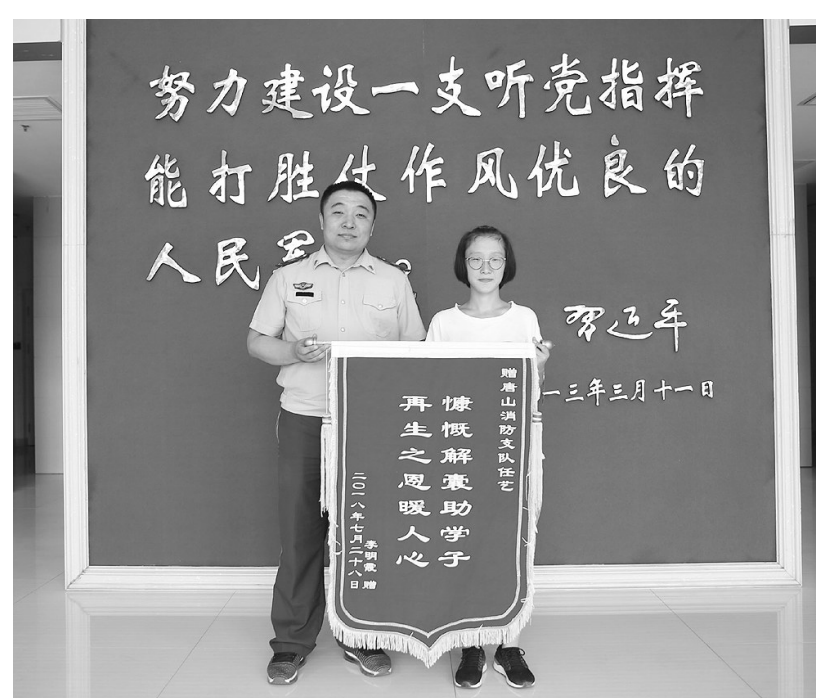 努力建设一支听党指挥
能打胜仗作风优良的
人民军。
习近平
一三年三月十一日
赠唐山消防支队任艺
慷慨解囊助学子
再生之恩暖人心
李明霞 赠
二〇一八年七月二十八日